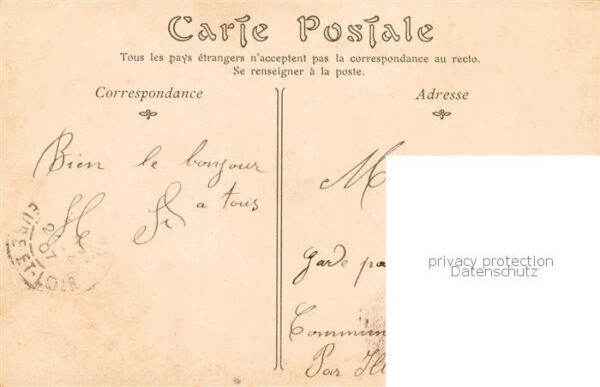 Carte Postale
Tous les pays étrangers n'acceptent pas la correspondance au recto.
Se renseigner à la poste.
Correspondance
Adresse
Bien le bonjour
a tous
M
Garde
Commun
Par Ill
EURE-ET-LOIR
privacy protection
Datenschutz